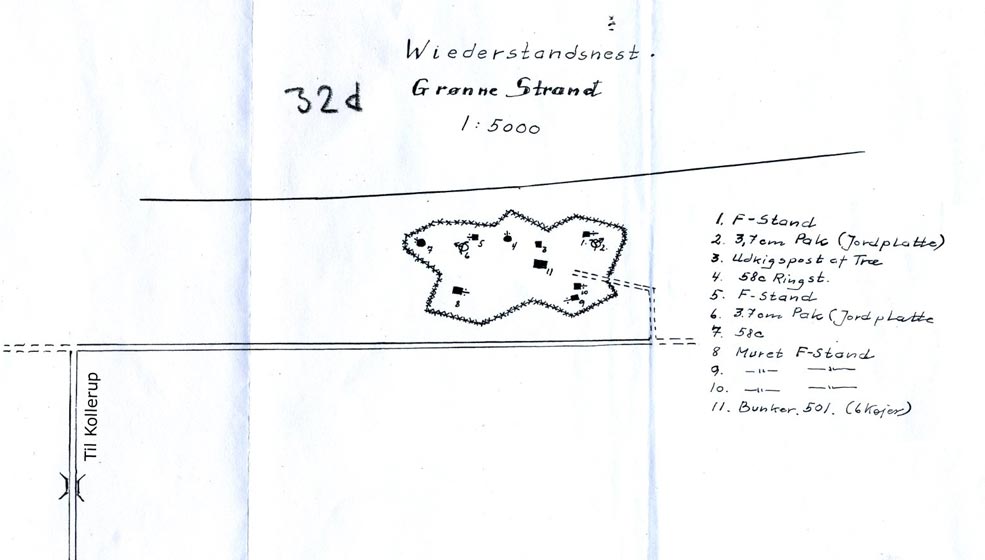 Wiederstandsnest.
32d
Grønne Strand
1:5000
1. F-Stand
2. 3,7cm Pak (Jordplatte)
3. Udkigspost af Træ
4. 58c Ringst.
5. F-Stand
6. 3.7cm Pak (Jordplatte
7. 58c
8 Muret F-Stand
9. -"- -"-
10. -"- -"-
11. Bunker. 501. (6 Køjer)
7
6
5
4
3
1.
2.
11
8
10
9
Til Kollerup